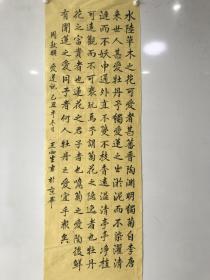 水陸草木之花可愛者甚蕃晉陶淵明獨愛菊自李唐
来世人甚愛牡丹予獨愛蓮之出淤泥而不染濯清
漣而不妖中通外直不蔓不枝香遠溢清亭亭净植
可遠觀而不可褻玩焉予謂菊花之隐逸者也牡丹
花之富貴者也蓮花之君子者也噫菊之愛陶後鮮
有聞蓮之愛同予者何人牡丹之愛宜乎衆矣
周敦頤愛蓮説己丑年冬日王生書於京華